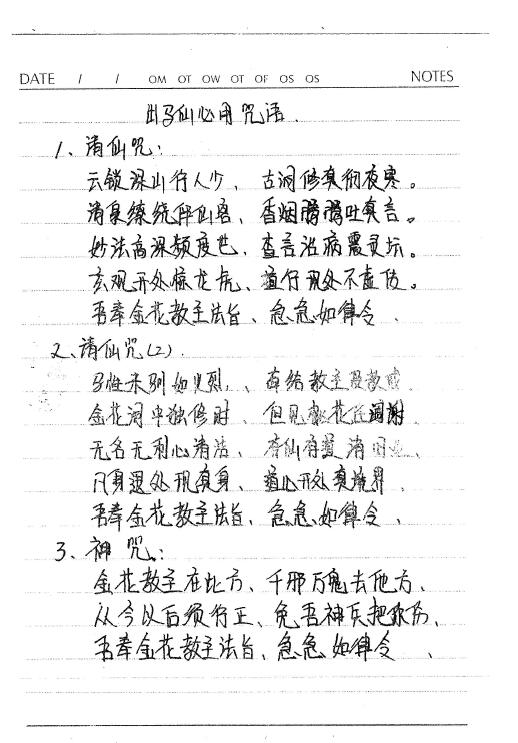 DATE / / OM OT OW OT OF OS OS NOTES
出马仙必用咒语.
1、请仙咒:
云锁深山行人少、古洞修真彻夜寒。
清泉缭绕伴仙客、香烟腾腾吐真言。
妙法高深频度世、查言治病震灵坛。
玄观开处惊龙虎、道行现处不虚传。
吾奉金花教主法旨、急急如律令、
2、请仙咒(2)、
马 来 如 、 给教主
金花洞中独修时、但见 花 谢
无名无利心清洁、 仙 清
凡身退处现真身、道心开处真境界、
吾奉金花教主法旨、急急如律令、
3、神咒:
金花教主在此方、千邪万鬼去他方、
从今以后须行正、免吾神兵把 伤、
吾奉金花教主法旨、急急如律令、